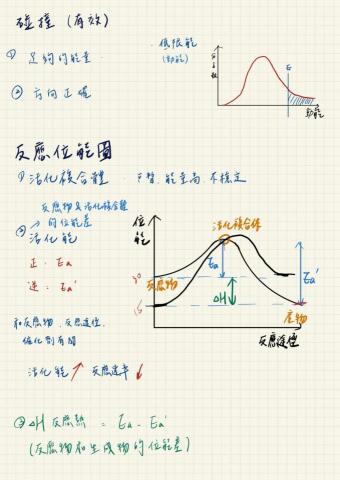 碰撞 (有效)
① 足夠的能量 · 低限能
(動能)
② 方向正確
分子數
E
動能
反應位能圖
① 活化複合體 · 短暫. 能量高. 不穩定
反應物與活化複合體
的位能差
② 活化能
正: Ea
逆: Ea'
和反應物. 反應途徑.
催化劑有關
活化能 ↑ 反應速率 ↓
位能
活化複合体
Ea
Ea'
30
反應物
ΔH
15
產物
反應途徑
③ ΔH 反應熱 = Ea - Ea'
(反應物和生成物的位能差)